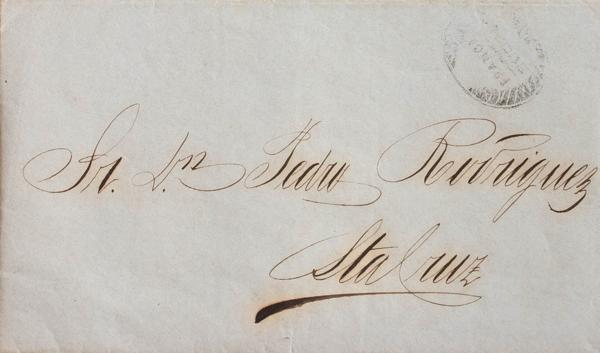 FRANCA
Sr. Dn. Pedro Rodriguez
Sta Cruz